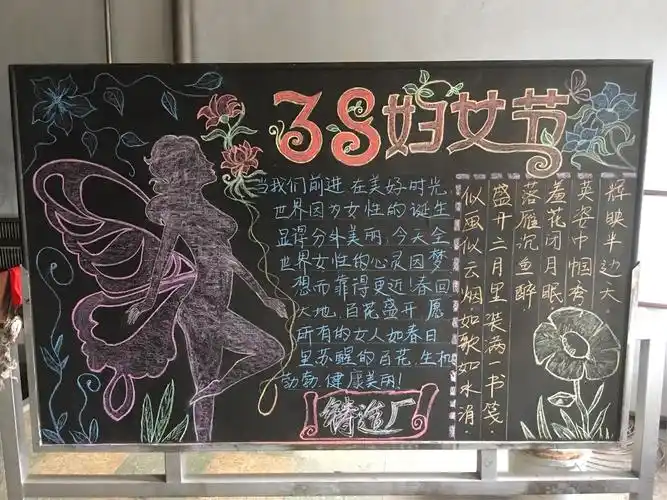 38妇女节
当我们前进在美好时光,
世界因为女性的诞生
显得分外美丽,今天全
世界女性的心灵因梦
想而靠得更近!春回
大地,百花盛开,愿
所有的女人如春日
里苏醒的百花,生机
勃勃,健康美丽!
铸造厂
辉映半边天。
英姿中帼夸
羞花闭月眠
落雁沉鱼醉
盛开三月里装满书笺
似风似云烟。如歌如水涓。